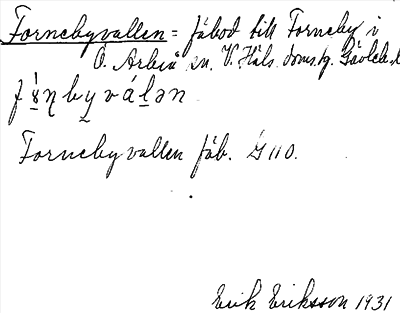 Fornebyvallen = fäbod till Forneby i
Ö. Arbrå sn. V. Häls. doms.g. Gävleb. l
Fornebyvallen fäb. G 110.
Erik Eriksson 1931